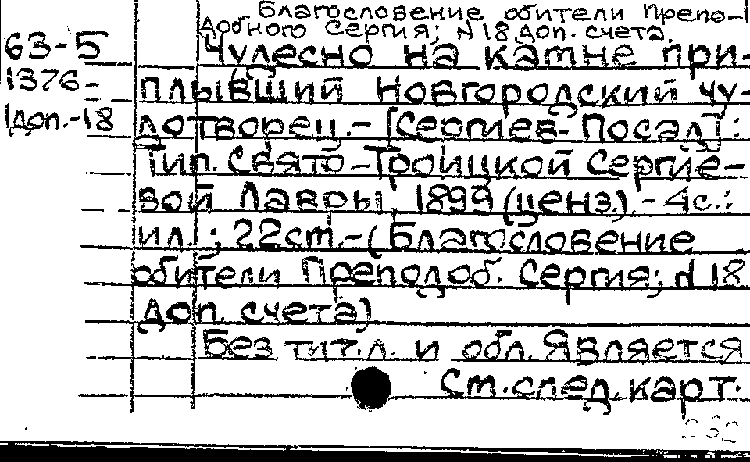 Благословение обители Препо-
добного Сергия; N 18 доп. счета.
63-5
1376-
1доп.-18
Чудесно на камне при-
плывший Новгородский чу-
дотворец.- [Сергиев-Посад]:
Тип. Свято-Троицкой Сергие-
вой Лавры, 1899 (ценз.).- 4с.:
ил.; 22см.-(Благословение
обители Преподоб. Сергия; N 18
доп. счета)
Без тит.л. и обл. Является
См.след.карт.